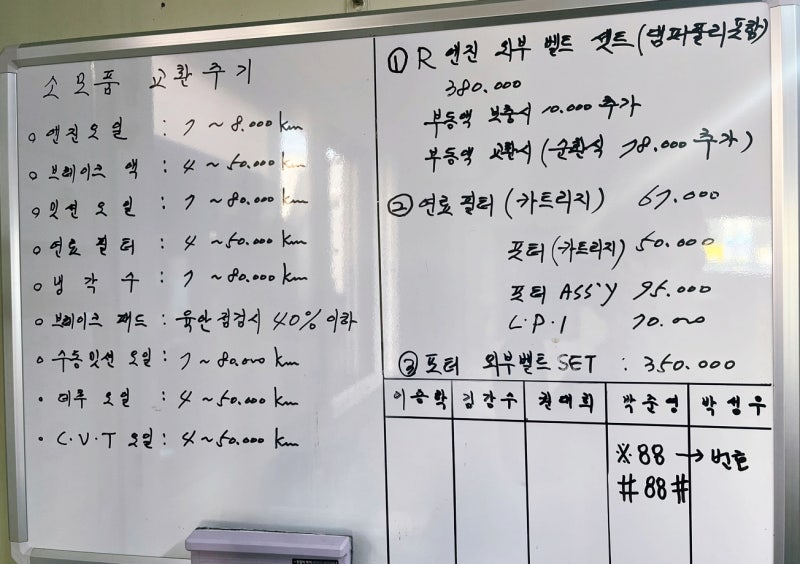 소모품 교환주기
○ 엔진오일 : 7 ~ 8.000 km
○ 브레이크 액 : 4 ~ 50.000 km
○ 밋션 오일 : 7 ~ 80.000 km
○ 연료 필터 : 4 ~ 50.000 km
○ 냉 각 수 : 7 ~ 80.000 km
○ 브레이크 패드 : 육안 점검시 40% 이하
○ 수동밋션 오일 : 7 ~ 80.000 km
• 미루 오일 : 4 ~ 50.000 km
• C.V.T 오일 : 4 ~ 50.000 km
① R 엔진 외부 벨트 셋트 (댐퍼풀리포함)
380.000
부동액 보충시 10.000 추가
부동액 교환시 (순환식 78.000 추가)
② 연료필터 (카트리지) 67.000
포터 (카트리지) 50.000
포터 ASS'Y 95.000
L.P.I 70.000
③ 포터 외부벨트 SET : 350.000
이승학 김강수 권대희 박준영 박성우
※88 → 번호
#88#